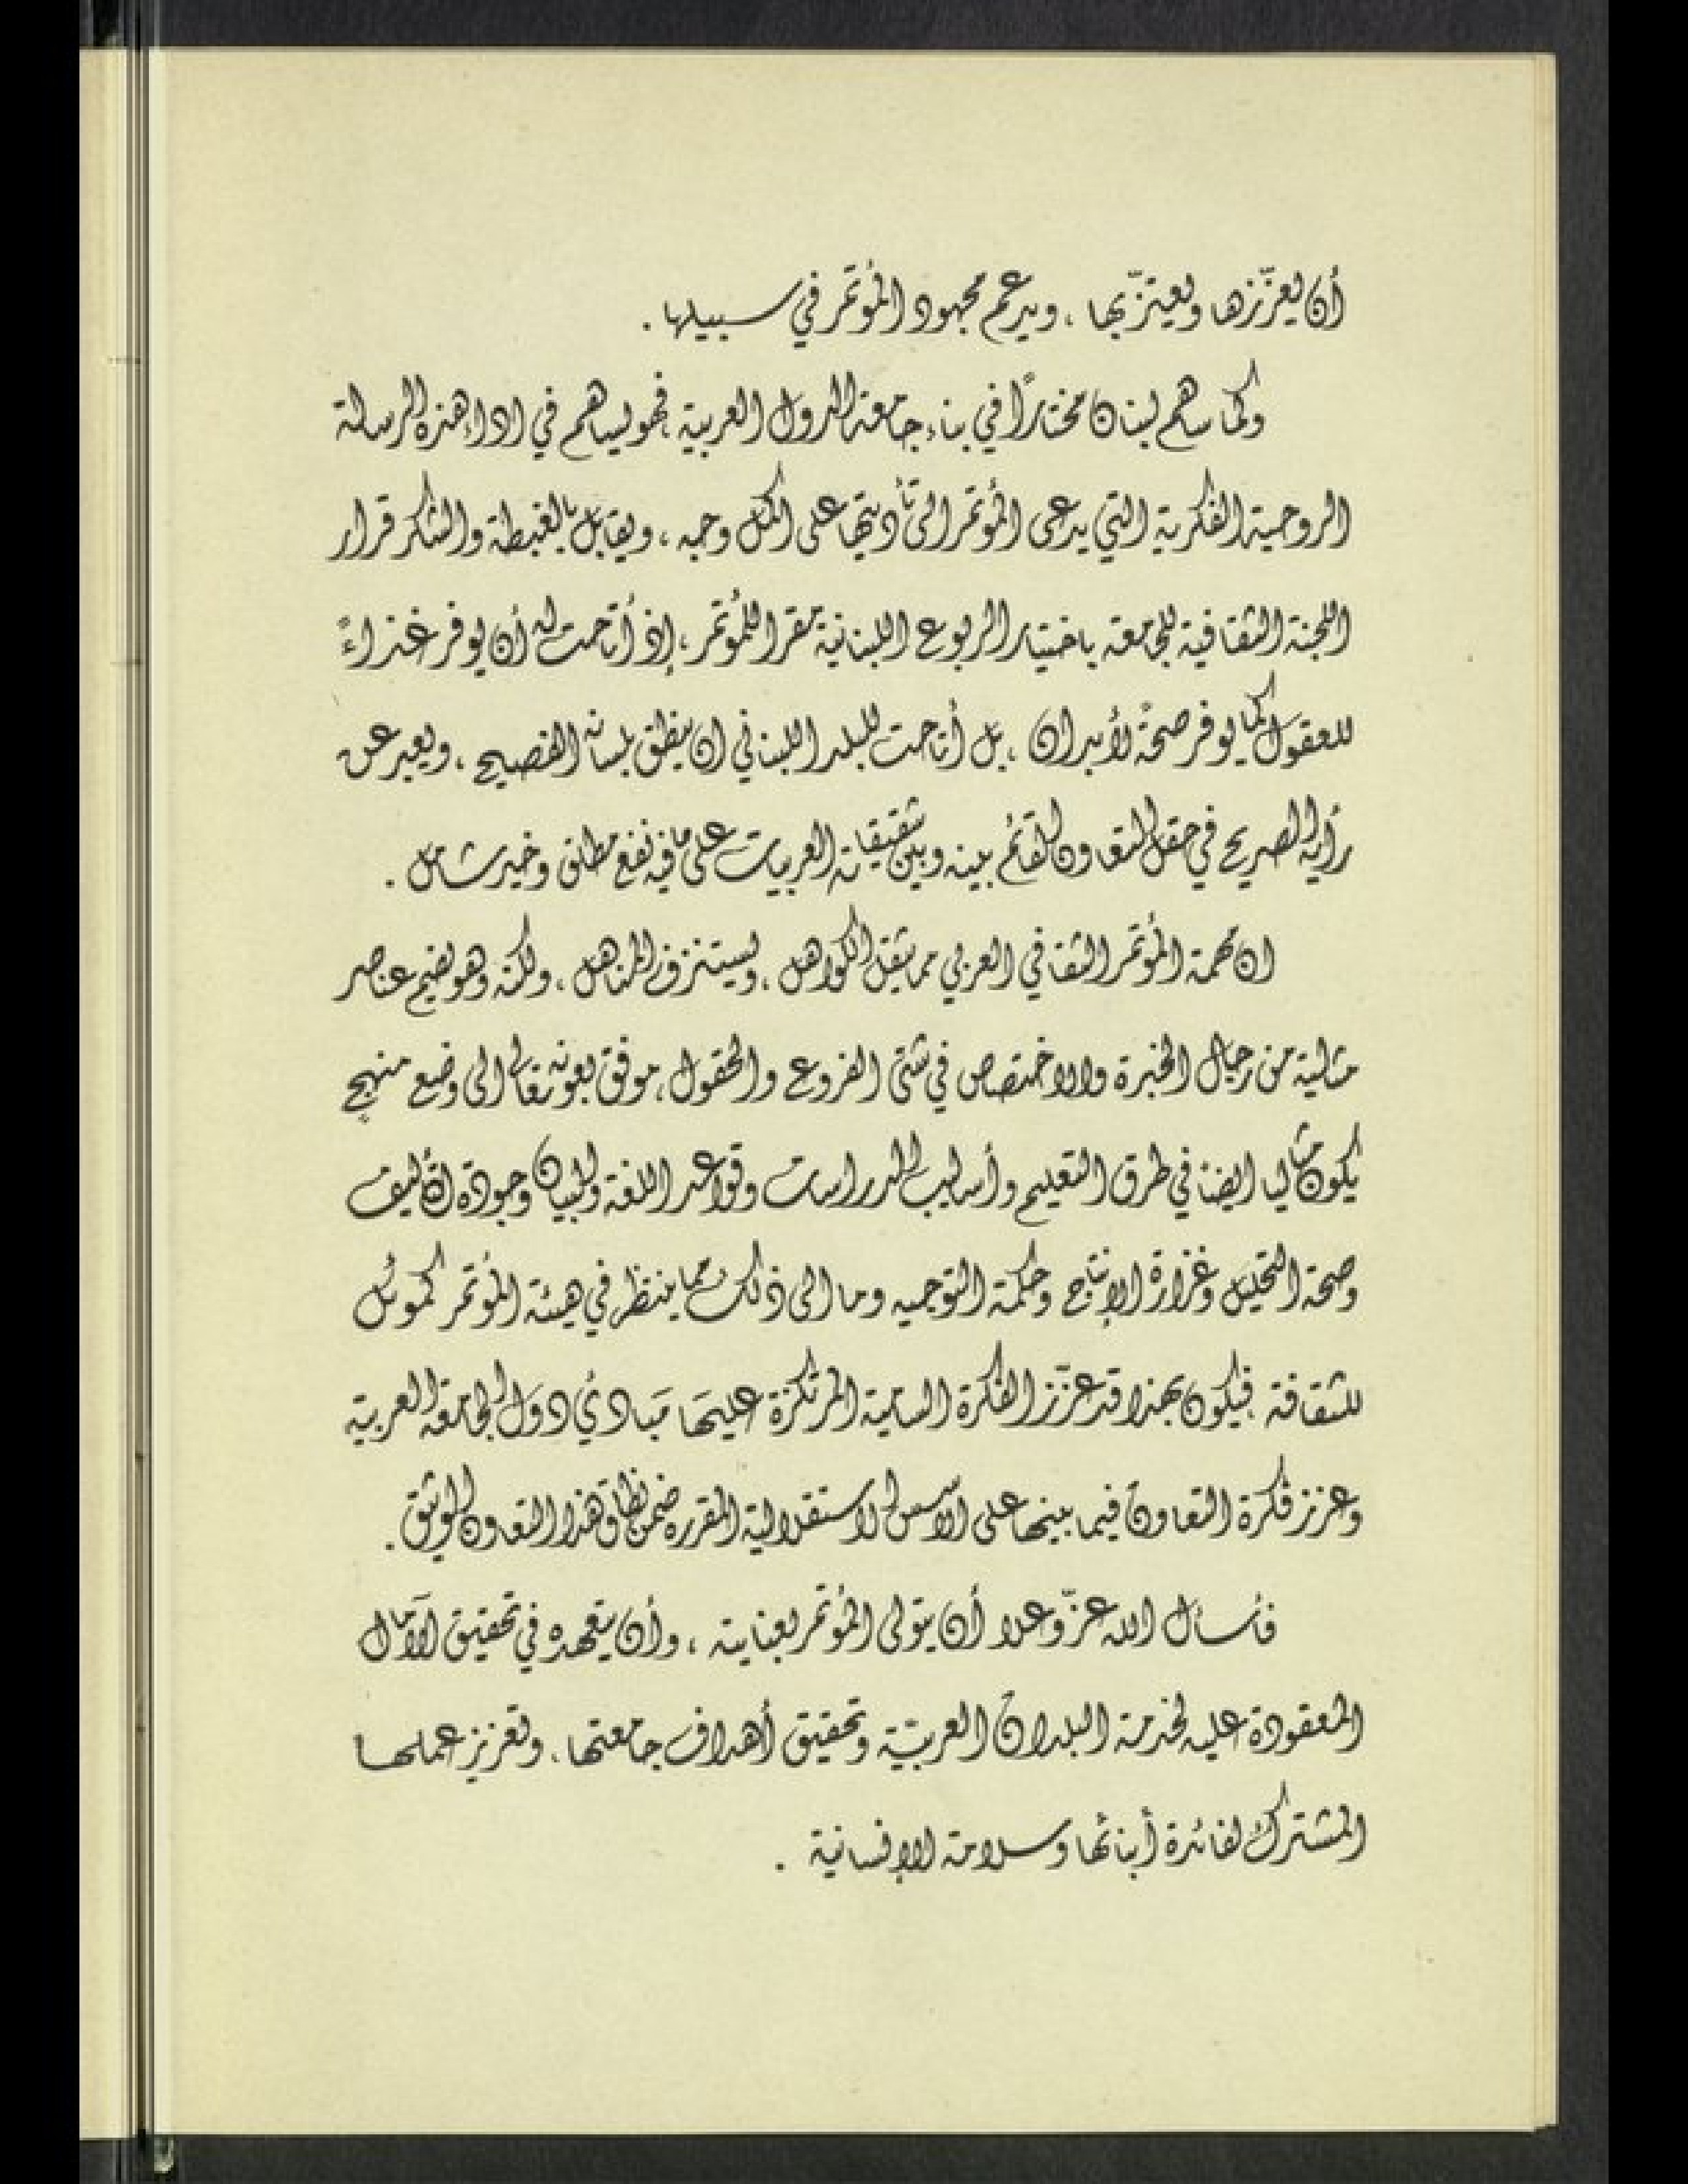 أن يعزّزها ويعتزّ بها ، ويدعم مجهود المؤتمر في سبيلها .
وكما ساهم لبنان مختاراً في بناء جامعة الدول العربية فهو يساهم في اداء هذه الرسالة
الروحية الفكرية التي يدعى المؤتمر الى تأديتها على اكمل وجه ، ويقابل بالغبطة والشكر قرار
اللجنة الثقافية للجامعة باختيار الربوع اللبنانية مقرا للمؤتمر ، إذ أتاحت له أن يوفر غذاءً
للعقول كما يوفر صحةً لأبدان ، بل أتاحت للبلد اللبناني ان ينطق بلسانه الفصيح ، ويعبر عن
رأيه الصريح في حقل التعاون القائم بينه وبين شقيقاته العربيات على ما فيه نفع مطلق وخير شامل .
ان مهمة المؤتمر الثقافي العربي مما يثقل الكواهل ، ويستنزف المناهل ، ولكنه وهو يضم عناصر
مثالية من رجال الخبرة والاختصاص في شتى الفروع والحقول ، موفق بعونه تعالى الى وضع منهجٍ
يكون مثاليا ايضا في طرق التعليم وأساليب الدراسات وقواعد اللغة والبيان وجودة التأليف
وصحة التحليل وغزارة الإنتاج وحكمة التوجيه وما الى ذلك مما ينتظر في هيئة المؤتمر كموئل
للثقافة ، فيكون بهذا قد عزّز الفكرة السامية المرتكزة عليها مبادئ دول الجامعة العربية
وعزز فكرة التعاون فيما بينها على الأسس الاستقلالية المقررة ضمن نطاق هذا التعاون الوثيق .
فأسأل الله عزّ وعلا أن يتولى المؤتمر بعنايته ، وأن يتعهده في تحقيق الآمال
المعقودة عليه لخدمة البلدان العربيّة وتحقيق أهداف جامعتها ، وتعزيز عملها
المشترك لفائدة أبنائها وسلامة الإنسانية .